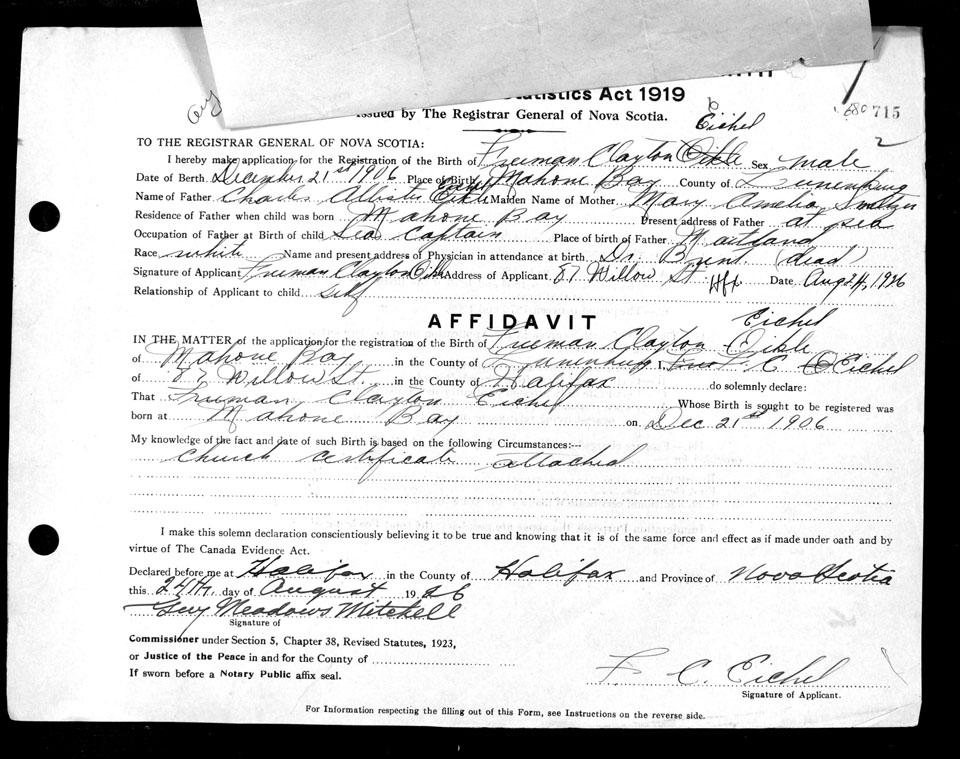 Statistics Act 1919
Issued by The Registrar General of Nova Scotia.
Eichel
680 715
TO THE REGISTRAR GENERAL OF NOVA SCOTIA:
2
I hereby make application for the Registration of the Birth of Freeman Clayton Oikle Sex male
Date of Berth. December 21st 1906 Place of Birth Mahone Bay County of Lunenburg
Eichel
Name of Father Charles Albister Oikle Maiden Name of Mother Mary Amelia
Residence of Father when child was born Mahone Bay Present address of Father at sea
Occupation of Father at Birth of child Sea Captain Place of birth of Father Maitland
Race white Name and present address of Physician in attendance at birth. Dr. (dead)
Signature of Applicant Freeman Clayton Oikle Address of Applicant. 87 Willow St Hfx Date Aug 24, 1926
Relationship of Applicant to child self
AFFIDAVIT
Eichel
IN THE MATTER of the application for the registration of the Birth of Freeman Clayton Oikle
of Mahone Bay in the County of Lunenburg I, C Eichel
of 87 Willow St. in the County of Halifax do solemnly declare:
That Freeman Clayton Eichel Whose Birth is sought to be registered was
born at Mahone Bay on Dec 21st 1906
My knowledge of the fact and date of such Birth is based on the following Circumstances:---
Church certificate attached
I make this solemn declaration conscientiously believing it to be true and knowing that it is of the same force and effect as if made under oath and by
virtue of The Canada Evidence Act.
Declared before me at Halifax in the County of Halifax and Province of Nova Scotia
this 24th. day of August 1926
Guy Meadows Mitchell
Signature of
Commissioner under Section 5, Chapter 38, Revised Statutes, 1923,
or Justice of the Peace in and for the County of
If sworn before a Notary Public affix seal.
F. C. Eichel
Signature of Applicant.
For Information respecting the filling out of this Form, see Instructions on the reverse side.